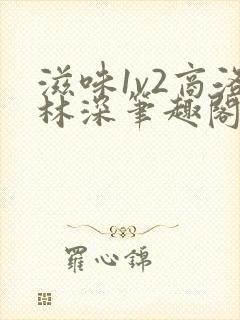 滋味1v2高洛
林深笔趣阁
羅心錦